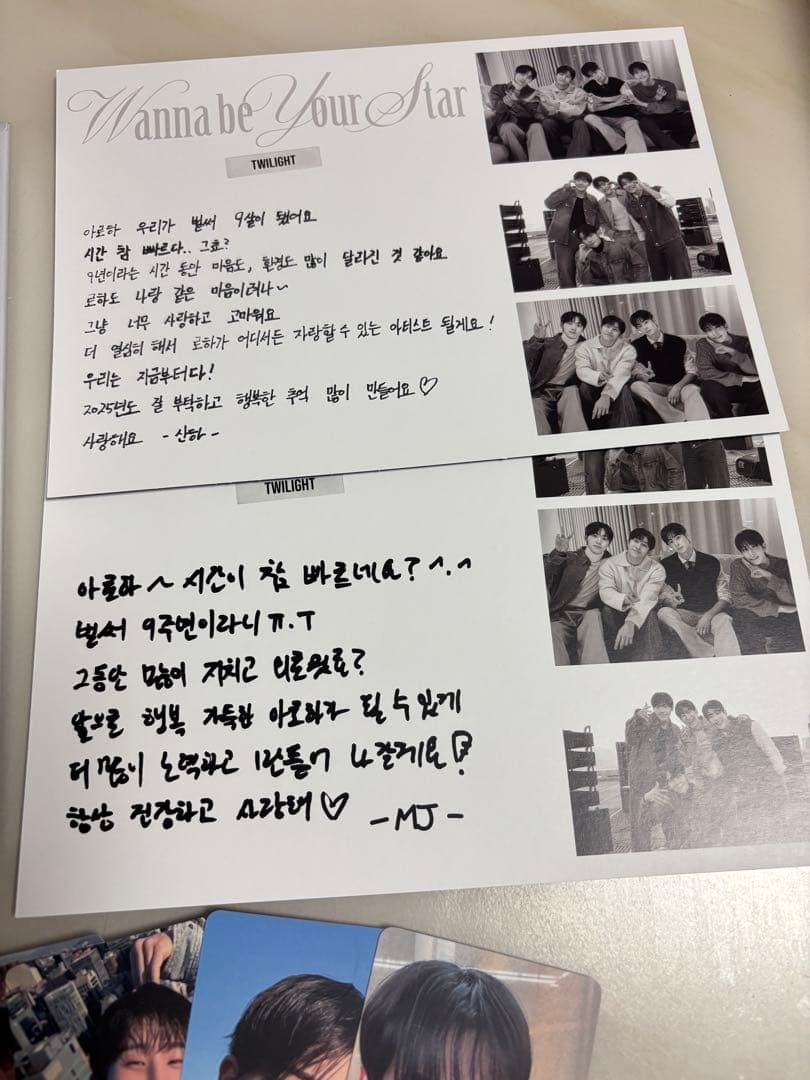 Wanna be Your Star
TWILIGHT
아로하 우리가 벌써 9살이 됐어요
시간 참 빠르다.. 그쵸?
9년이라는 시간 동안 마음도, 환경도 많이 달라진 것 같아요
로하도 나랑 같은 마음이려나~
그냥 너무 사랑하고 고마워요
더 열심히 해서 로하가 어디서든 자랑할 수 있는 아티스트 될게요!
우리는 지금부터다!
2025년도 잘 부탁하고 행복한 추억 많이 만들어요♡
사랑해요 -산하-
TWILIGHT
아로하~ 시간이 참 빠르네요? ^.^
벌써 9주년이라니 ㅠ.ㅜ
그동안 많이 지치고 외로웠죠?
앞으로 행복 가득한 아로하가 될 수 있게
더 많이 노력하고 만들어 나갈게요
항상 건강하고 사랑해♡ -MJ-